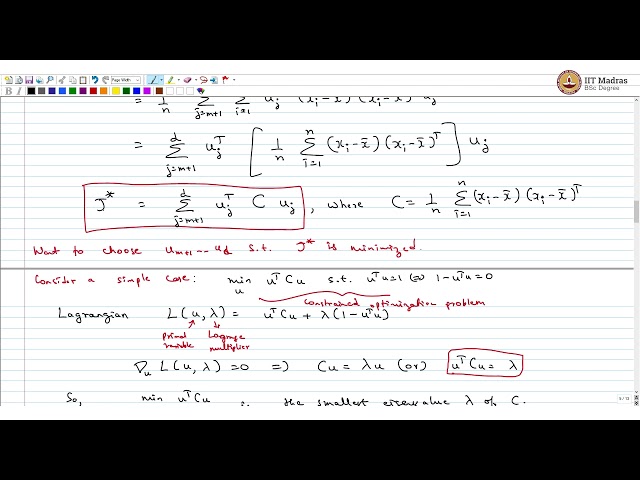 IIT Madras
BSc Degree
Page Width
= 1/n Σ_{j=m+1}^{d} Σ_{i=1} u_j (x_i - x̄) (x_i - x̄) u_j
= Σ_{j=m+1}^{d} u_j^T [ 1/n Σ_{i=1}^{n} (x_i - x̄) (x_i - x̄)^T ] u_j
J* = Σ_{j=m+1}^{d} u_j^T C u_j , where C = 1/n Σ_{i=1}^{n} (x_i - x̄) (x_i - x̄)^T
Want to choose u_{m+1} --- u_d s.t. J* is minimized.
Consider a simple case: min_u u^T C u s.t. u^T u = 1 ⇔ 1 - u^T u = 0
constrained optimization problem
Lagrangian L(u, λ) = u^T C u + λ(1 - u^T u)
primal variable
Lagrange multiplier
∇_u L(u, λ) = 0 ⇒ C u = λ u (or) u^T C u = λ
So, min u^T C u is the smallest eigenvalue λ of C.
5 / 13